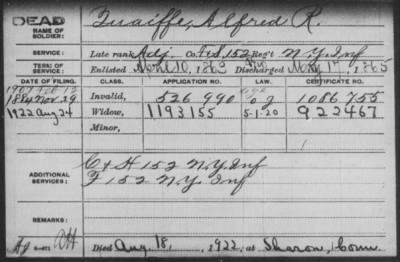 DEAD
NAME OF SOLDIER: Quaiffe, Alfred R.
SERVICE: Late rank Adj. Co. F&S, 152 Reg't N.Y. Inf
TERM OF SERVICE: Enlisted 10, 1863 Discharged 1865
DATE OF FILING. CLASS. APPLICATION NO. LAW. CERTIFICATE NO.
1907 Feb 12
1884 Nov. 29 Invalid, 526 990 1086 755
1922 Aug 24 Widow, 1193155 5-1-20 922467
Minor,
ADDITIONAL SERVICES: C & H 152 N.Y. Inf
F 152 N.Y. Inf
REMARKS:
Died Aug. 18, 1922, at Sharon, Conn.